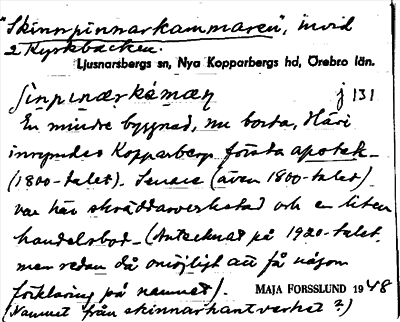 "Skinnpinnarkammaren", invid
2 Kyrkbacken.
Ljusnarsbergs sn, Nya Kopparbergs hd, Örebro län.
j 131
En mindre byggnad, nu borta. Häri
inrymdes Kopparbergs första apotek
(1800-talet). Senare (även 1800-talet)
var här skräddarverkstad och en liten
handelsbod. (Antecknat på 1920-talet,
men redan då omöjligt att få någon
förklaring på namnet).
MAJA FORSSLUND 1948
(Namnet från skinnarhantverket?)